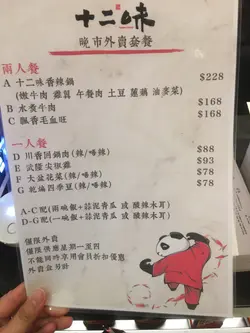 十二味
晚市外賣套餐
兩人餐
A 十二味香辣鍋 $228
(嫩牛肉 雞翼 午餐肉 土豆 蓮藕 油麥菜)
B 水煮牛肉 $168
C 飄香毛血旺 $168
一人餐
D 川香回鍋肉(辣/唔辣) $88
E 武隆尖椒雞 $93
F 大盆花菜(辣/唔辣) $78
G 乾煸四季豆(辣/唔辣) $78
A-C配(兩碗飯+蒜泥青瓜 或 酸辣木耳)
D-G配(一碗飯+蒜泥青瓜 或 酸辣木耳)
僅限外賣
僅限供應星期一至四
不能同時享用會員折扣優惠
外賣盒另計